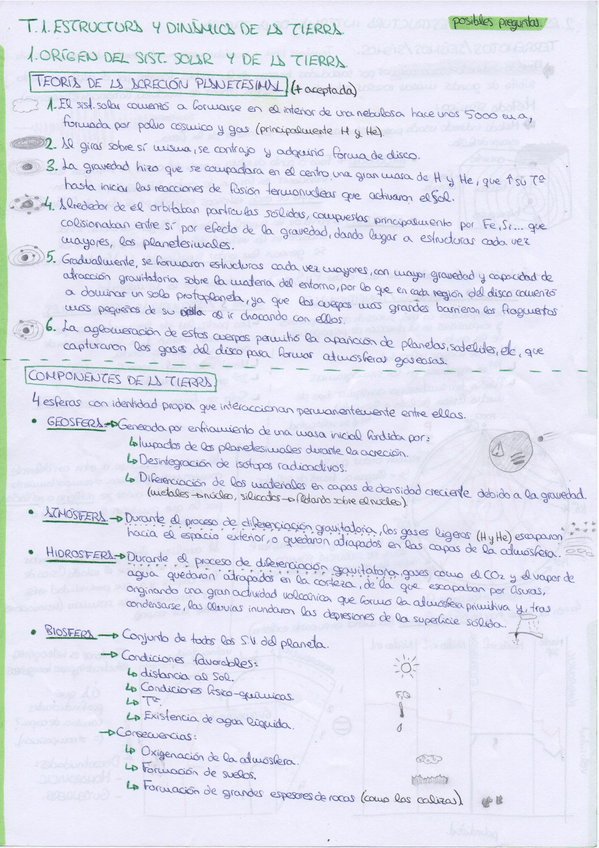 T.1. ESTRUCTURA Y DINÁMICA DE LA TIERRA
posibles preguntas.
1. ORÍGEN DEL SIST. SOLAR Y DE LA TIERRA
TEORÍA DE LA ACRECIÓN PLANETESIMAL (+ aceptada)
1. El sist. solar comenzó a formarse en el interior de una nebulosa hace unos 5000 m.a,
formada por polvo cósmico y gas (principalmente H y He)
2. Al girar sobre sí misma, se contrajo y adquirió forma de disco.
3. La gravedad hizo que se compactara en el centro una gran masa de H y He, que ↑ su Tª
hasta iniciar las reacciones de fusión termonuclear que activaron el Sol.
4. Alrededor de él orbitaban partículas sólidas, compuestas principalmente por Fe, Si... que
colisionaban entre sí por efecto de la gravedad, dando lugar a estructuras cada vez
mayores, los planetesimales.
5. Gradualmente, se formaron estructuras cada vez mayores, con mayor gravedad y capacidad de
atracción gravitatoria sobre la materia del entorno, por lo que en cada región del disco comenzó
a dominar un solo protoplaneta, ya que los cuerpos más grandes barrieron los fragmentos
más pequeños de su órbita al ir chocando con ellos.
6. La aglomeración de estos cuerpos permitió la aparición de planetas, satélites, etc, que
capturaron los gases del disco para formar atmósferas gaseosas.
COMPONENTES DE LA TIERRA
4 esferas con identidad propia que interaccionan permanentemente entre ellas.
• GEOSFERA → Generada por enfriamiento de una masa inicial fundida por:
↳ Impactos de los planetesimales durante la acreción.
↳ Desintegración de isótopos radioactivos.
↳ Diferenciación de los materiales en capas de densidad creciente debido a la gravedad.
(metales → núcleo, silicatos → flotando sobre el núcleo)
• ATMÓSFERA → Durante el proceso de diferenciación gravitatoria, los gases ligeros (H y He) escaparon
hacia el espacio exterior, o quedaron atrapados en las capas de la atmósfera.
• HIDROSFERA → Durante el proceso de diferenciación gravitatoria, gases como el CO2 y el vapor de
agua quedaron atrapados en la corteza, de la que escapaban por fisuras,
originando una gran actividad volcánica que formó la atmósfera primitiva y, tras
condensarse, las lluvias inundaron las depresiones de la superficie sólida.
• BIOSFERA → Conjunto de todos los SV del planeta.
→ Condiciones favorables:
↳ distancia al Sol.
↳ Condiciones físico-químicas. F.Q
↳ Tª.
↳ Existencia de agua líquida.
→ Consecuencias:
↳ Oxigenación de la atmósfera.
↳ Formación de suelos.
↳ Formación de grandes espesores de rocas (como las calizas)